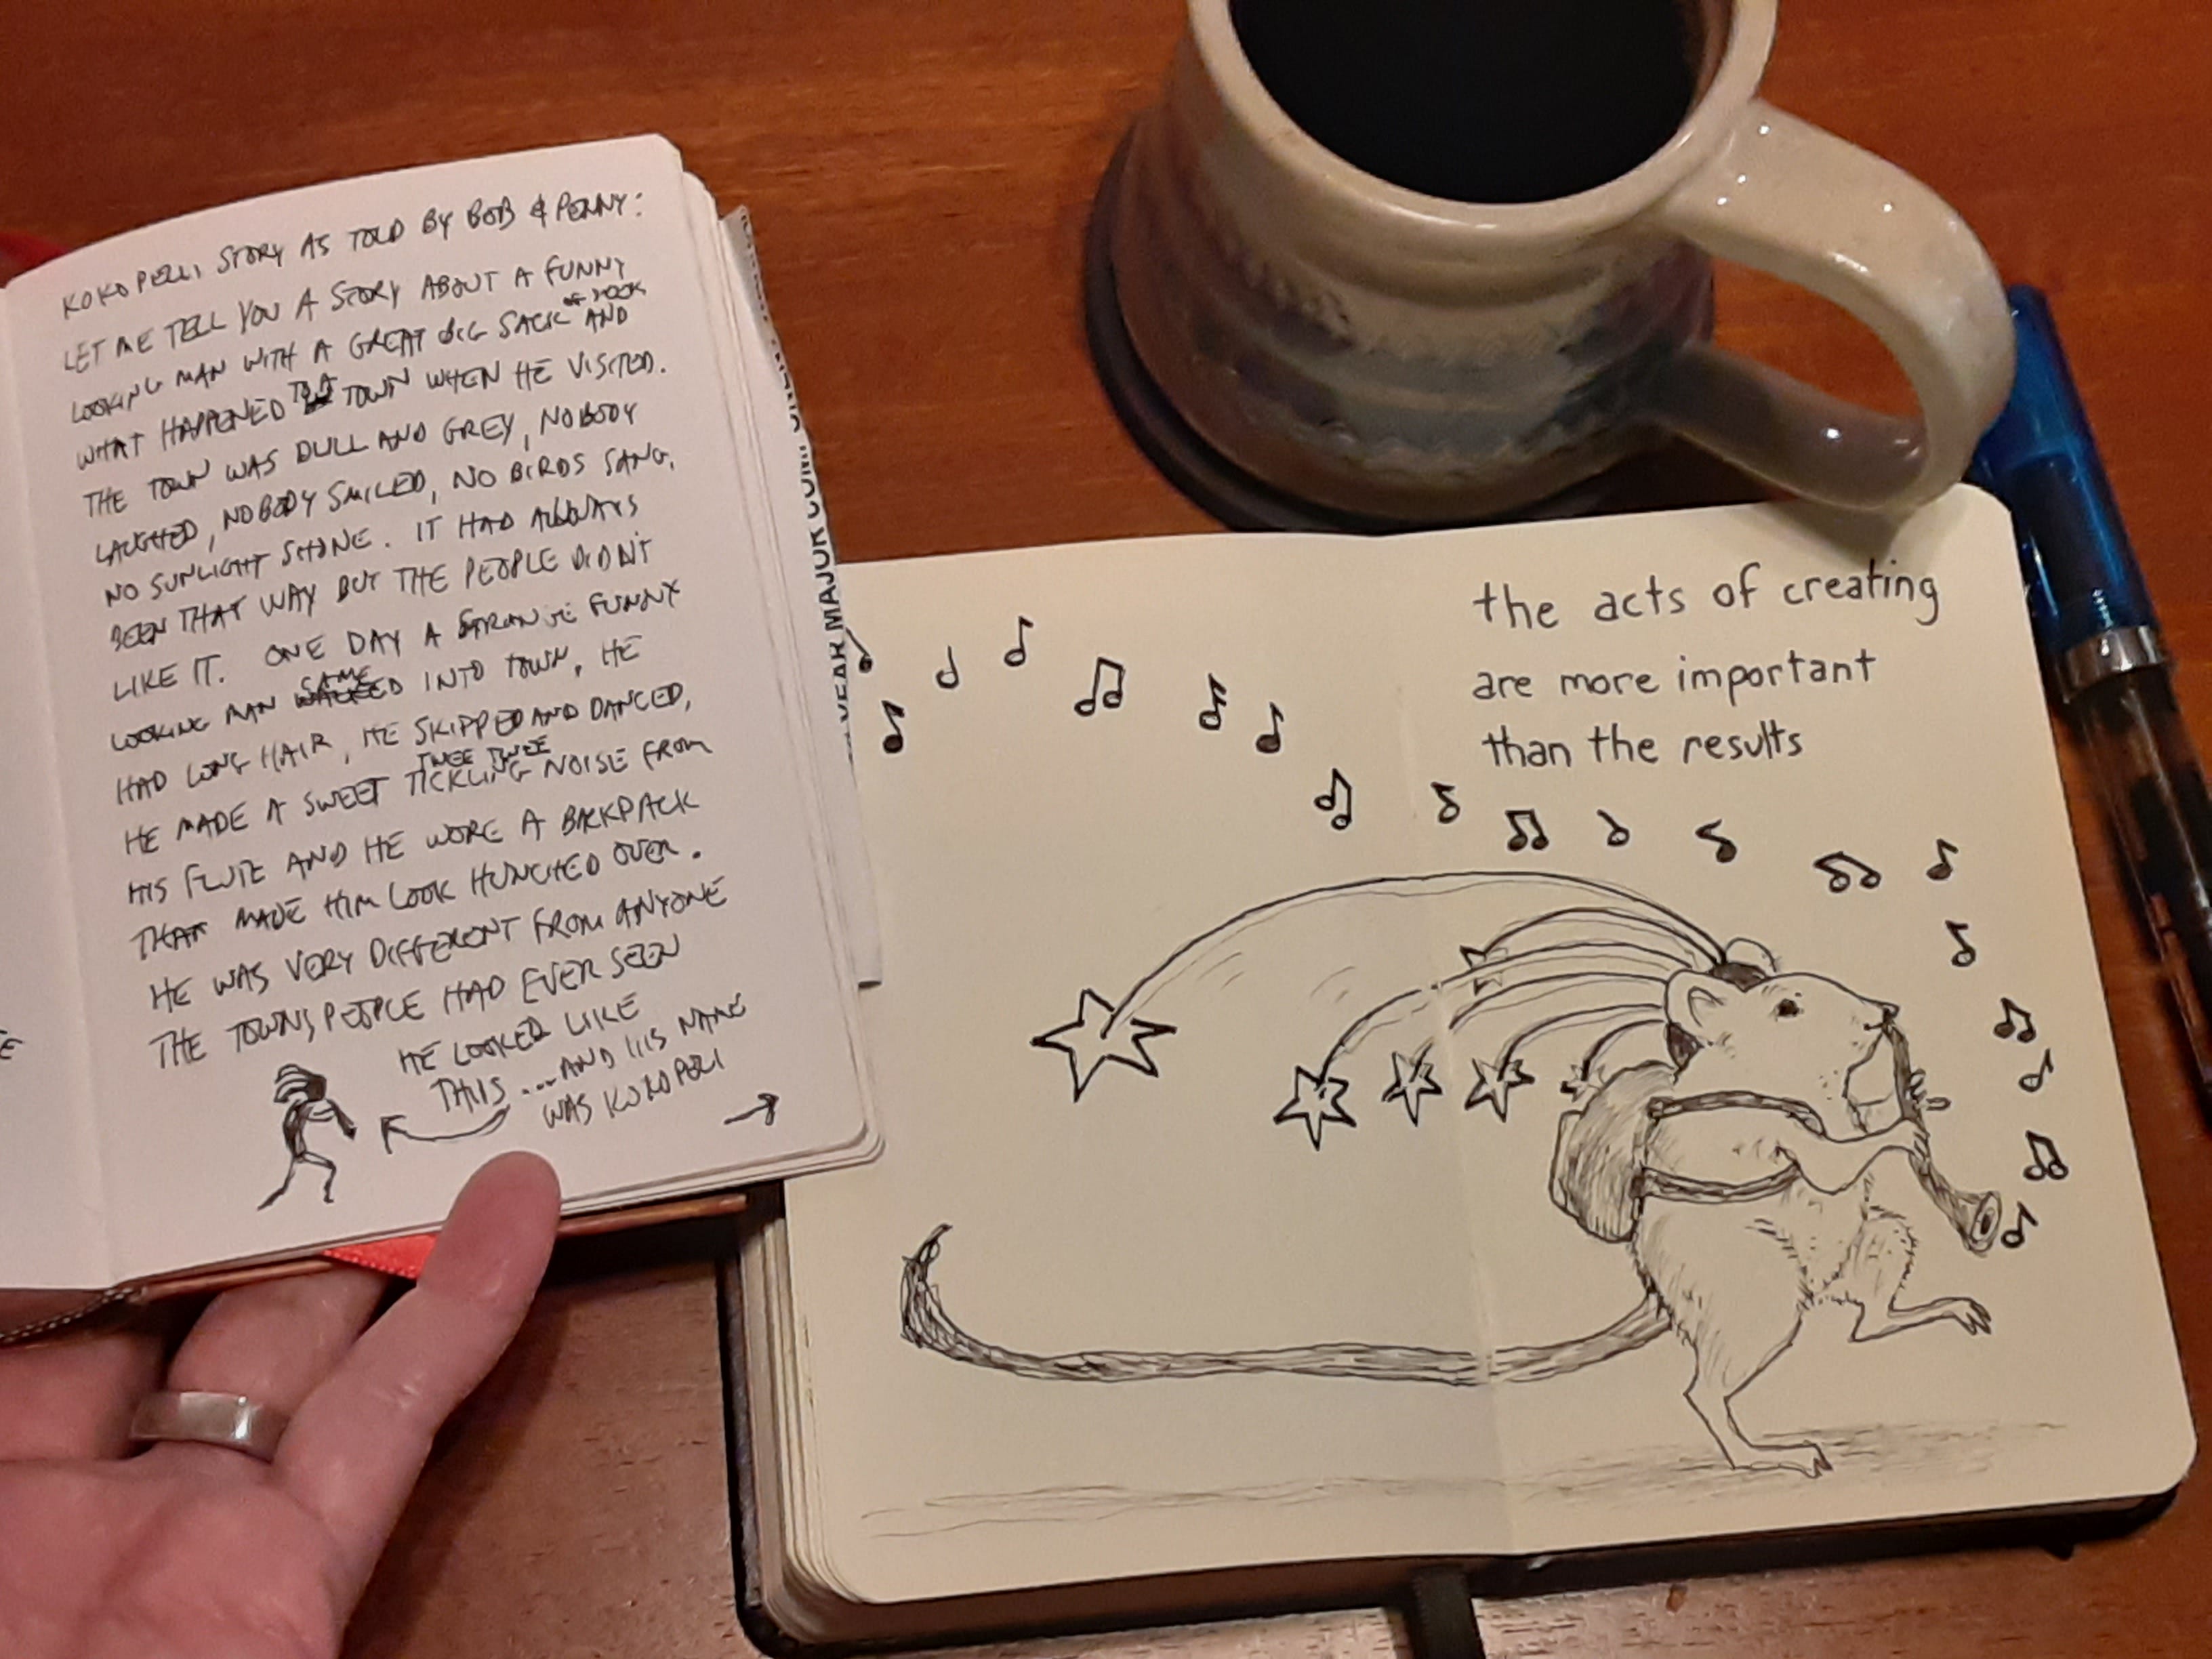 KOKOPELLI STORY AS TOLD BY BOB & PENNY:
LET ME TELL YOU A STORY ABOUT A FUNNY
LOOKING MAN WITH A GREAT BIG SACK AND
WHAT HAPPENED TO A TOWN WHEN HE VISITED.
THE TOWN WAS DULL AND GREY, NOBODY
LAUGHED, NOBODY SMILED, NO BIRDS SANG,
NO SUNLIGHT SHONE. IT HAD ALWAYS
BEEN THAT WAY BUT THE PEOPLE DIDN'T
LIKE IT. ONE DAY A STRANGE FUNNY
LOOKING MAN CAME INTO TOWN, HE
HAD LONG HAIR, HE SKIPPED AND DANCED,
TWEE TWEE
HE MADE A SWEET TICKLING NOISE FROM
HIS FLUTE AND HE WORE A BACKPACK
THAT MADE HIM LOOK HUNCHED OVER.
HE WAS VERY DIFFERENT FROM ANYONE
THE TOWNSPEOPLE HAD EVER SEEN
HE LOOKED LIKE
THIS ... AND HIS NAME
WAS KOKOPELI
YEAR MAJOR
the acts of creating
are more important
than the results